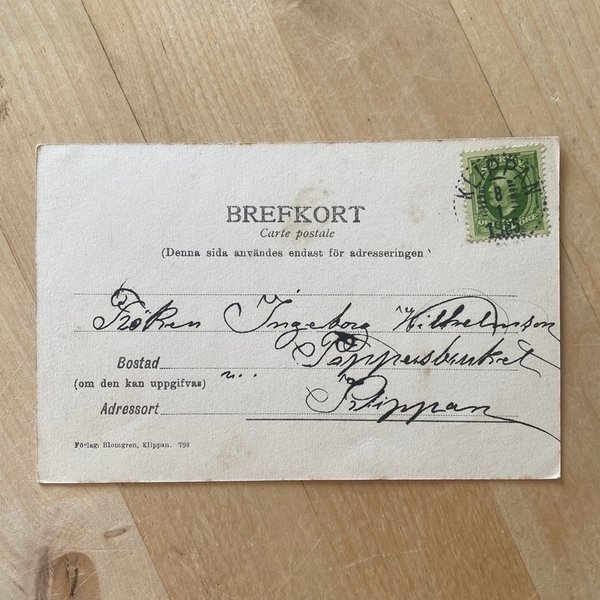 KLIPPAN
8
BREFKORT
Carte postale
(Denna sida användes endast för adresseringen
Fröken Ingeborg Wilhelmson
Bostad Pappersbruket
(om den kan uppgifvas)
Adressort Klippan
Förlag: Blomgren, Klippan. 793